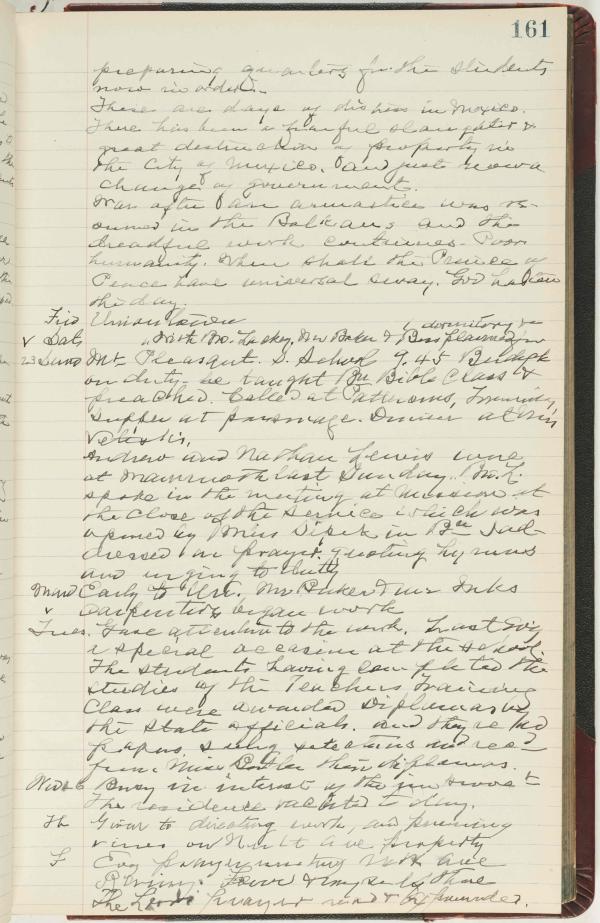 161
preparing quarters for the students
now in order.
These are days of distress in Mexico.
There has been a fearful slaughter &
great destruction of property in
the City of Mexico. and just now a
change of government.
War after an armastice was re-
sumed in the Balkans and the
dreadful work continues. Poor
humanity. When shall the Prince of
Peace have universal sway. God hasten
the day.
Frid Uniontown
v Sat, dormitory
With Bro. Lackey, Mr Baker &
23 Sund Mt. Pleasant. S. School 9.45
on duty. He taught Bible Class &
preached. Called at
Supper at parsonage. Dinner at

Andrew and Nathan Lewis were
at Mammoth last Sunday. Bro. L.
spoke in the meeting at Mission at
the close of the service which was
opened by Miss in I ad-
dressed in prayer, quoting hymns
and urging to duty
Mond Early to Un. Mr Baker & Mr Inks
v Carpenters began work
Tues. Gave attention to the work. Last Evg
a special occasion at the school.
The students having completed the
studies of the Teachers Training
Class were awarded Diplomas by
the State officials. and they read
papers, sung selections and rec'd
from Miss their diplomas.
Wed Busy in interest of the
The residence vacated to day.
Th Given to directing work, and pruning
vines on Ave property
F Evg prayer meeting Ave
& myself there
The Lords prayer read &